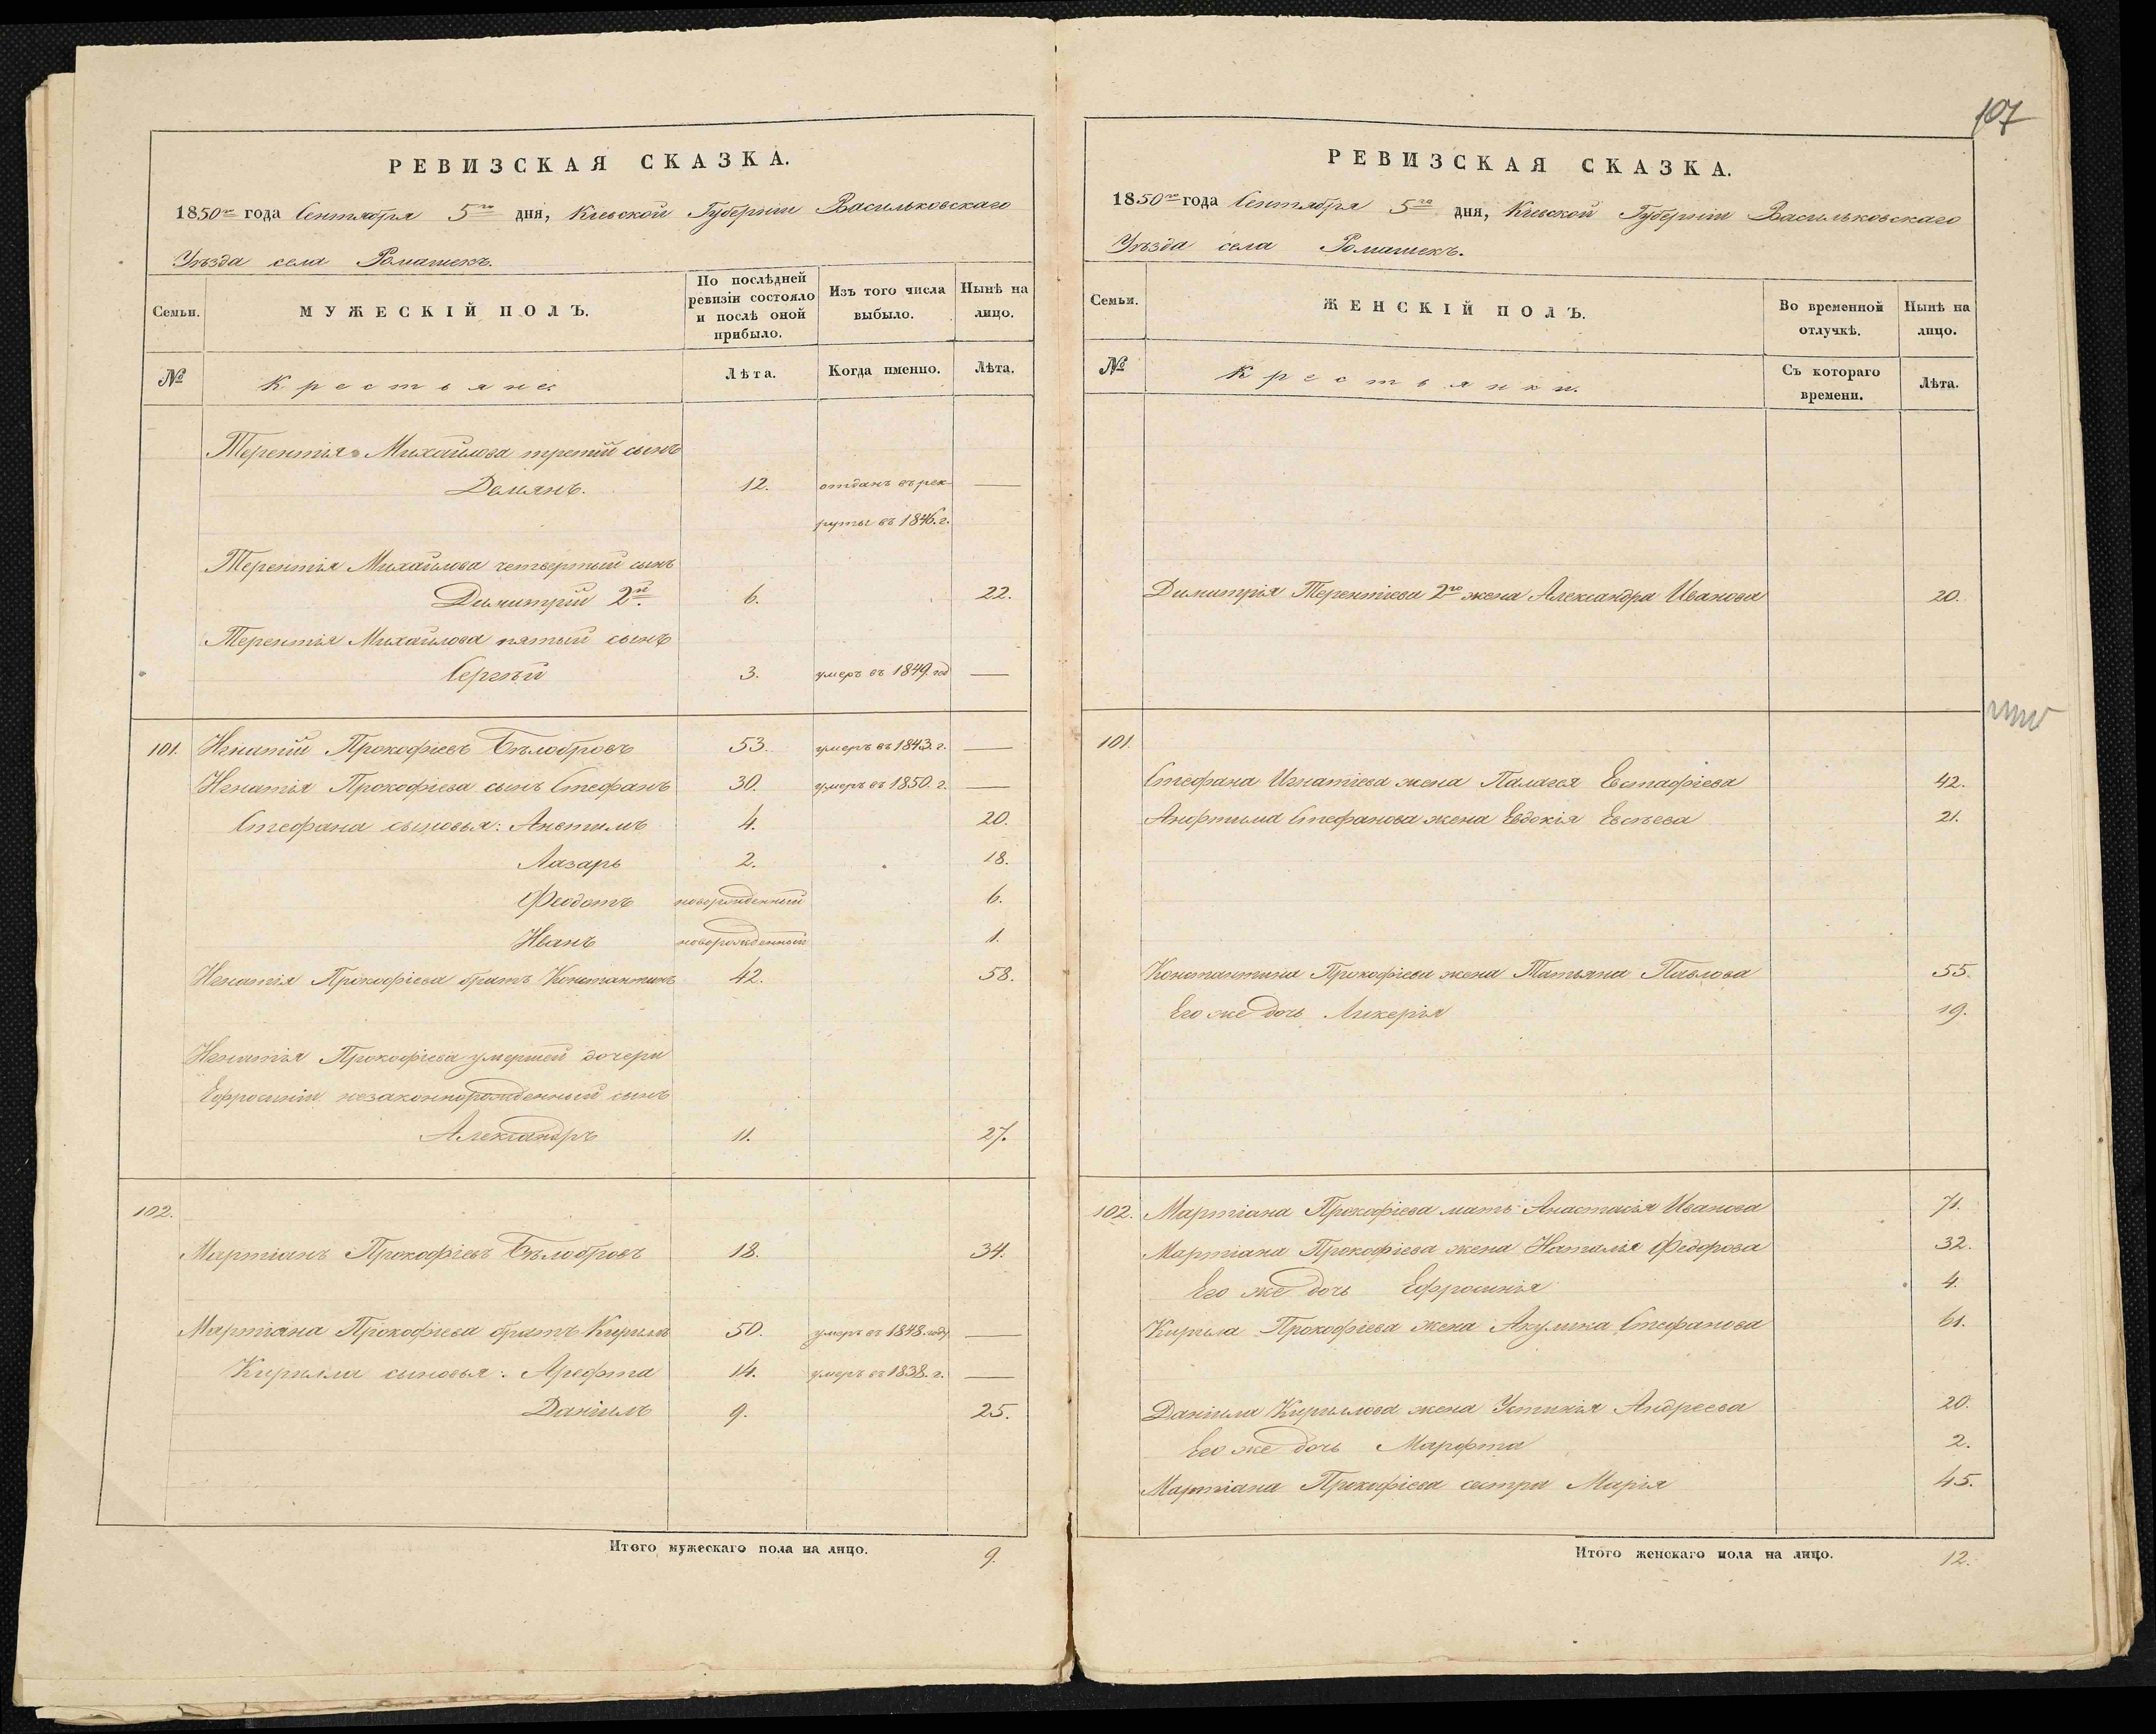 107
РЕВИЗСКАЯ СКАЗКА.
1850го года Сентября 5го дня, Кіевской Губерніи Васильковскаго
Уѣзда села Ромашекъ.
Семьи.
МУЖЕСКІЙ ПОЛЪ.
По послѣдней ревизіи состояло и послѣ оной прибыло.
Изъ того числа выбыло.
Нынѣ на лицо.
№
Крестьяне.
Лѣта.
Когда именно.
Лѣта.
Терентія Михайлова третій сынъ
Демянъ. 12. отданъ въ рек-
руты въ 1846. г.
Терентія Михайлова четвертый сынъ
Димитрій 2й. 6. 22.
Терентія Михайлова пятый сынъ
Сергѣй 3. умеръ въ 1849. год
101. Игнатій Прокофіевъ Бѣлобровъ 53. умеръ въ 1843. г.
Игнатія Прокофіева сынъ Стефанъ 30. умеръ въ 1850. г.
Стефана сыновья: Анѳтимъ 4. 20.
Лазарь 2. 18.
Феодотъ новорожденный 6.
Иванъ новорожденный 1.
Игнатія Прокофіева братъ Константинъ 42. 58.
Игнатія Прокофіева умершей дочери
Ефросиніи незаконнорожденный сынъ
Александръ 11. 27.
102.
Мартіанъ Прокофіевъ Бѣлобровъ 18. 34.
Мартіана Прокофіева братъ Кирилъ 50. умеръ въ 1848. году
Кирилла сыновья: Арефта 14. умеръ въ 1838. г.
Даніилъ 9. 25.
Итого мужескаго пола на лицо. 9.
РЕВИЗСКАЯ СКАЗКА.
1850го года Сентября 5го дня, Кіевской Губерніи Васильковскаго
Уѣзда села Ромашекъ.
Семьи.
ЖЕНСКІЙ ПОЛЪ.
Во временной отлучкѣ.
Нынѣ на лицо.
№
Крестьянки.
Съ котораго времени.
Лѣта.
Димитрія Терентіева 2го жена Александра Иванова 20.
101.
Стефана Игнатіева жена Палагея Евстафіева 42.
Анфтима Стефанова жена Евдокія Евсѣева 21.
Константина Прокофіева жена Татьяна Павлова 55.
Его же дочь Ликерія 19.
102. Мартіана Прокофіева мать Анастасія Иванова 71.
Мартіана Прокофіева жена Наталія Федорова 32.
Его же дочь Ефросинія 4.
Кирила Прокофіева жена Акулина Стефанова 61.
Даніила Кирилова жена Устинія Андреева 20.
Его же дочь Марфта 2.
Мартіана Прокофіева сестра Марія 45.
Итого женскаго пола на лицо. 12.